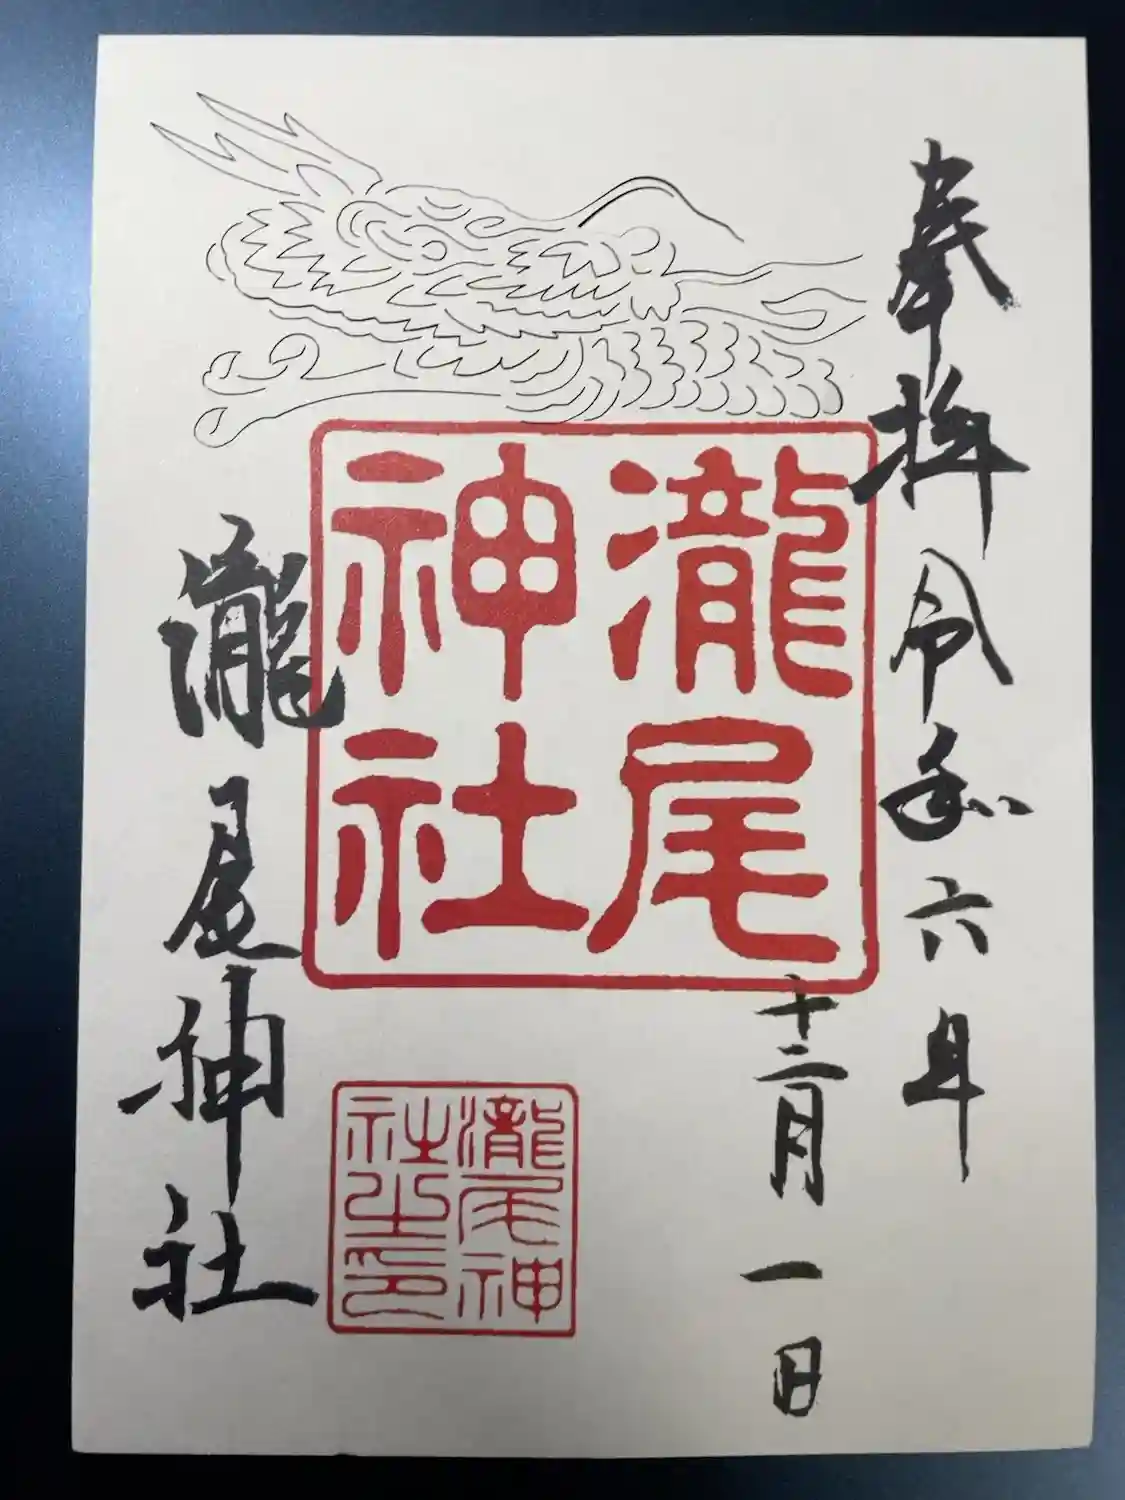 奉拝 令和六年
十二月 一日
瀧尾
神社
瀧尾神
社之印
瀧尾神社